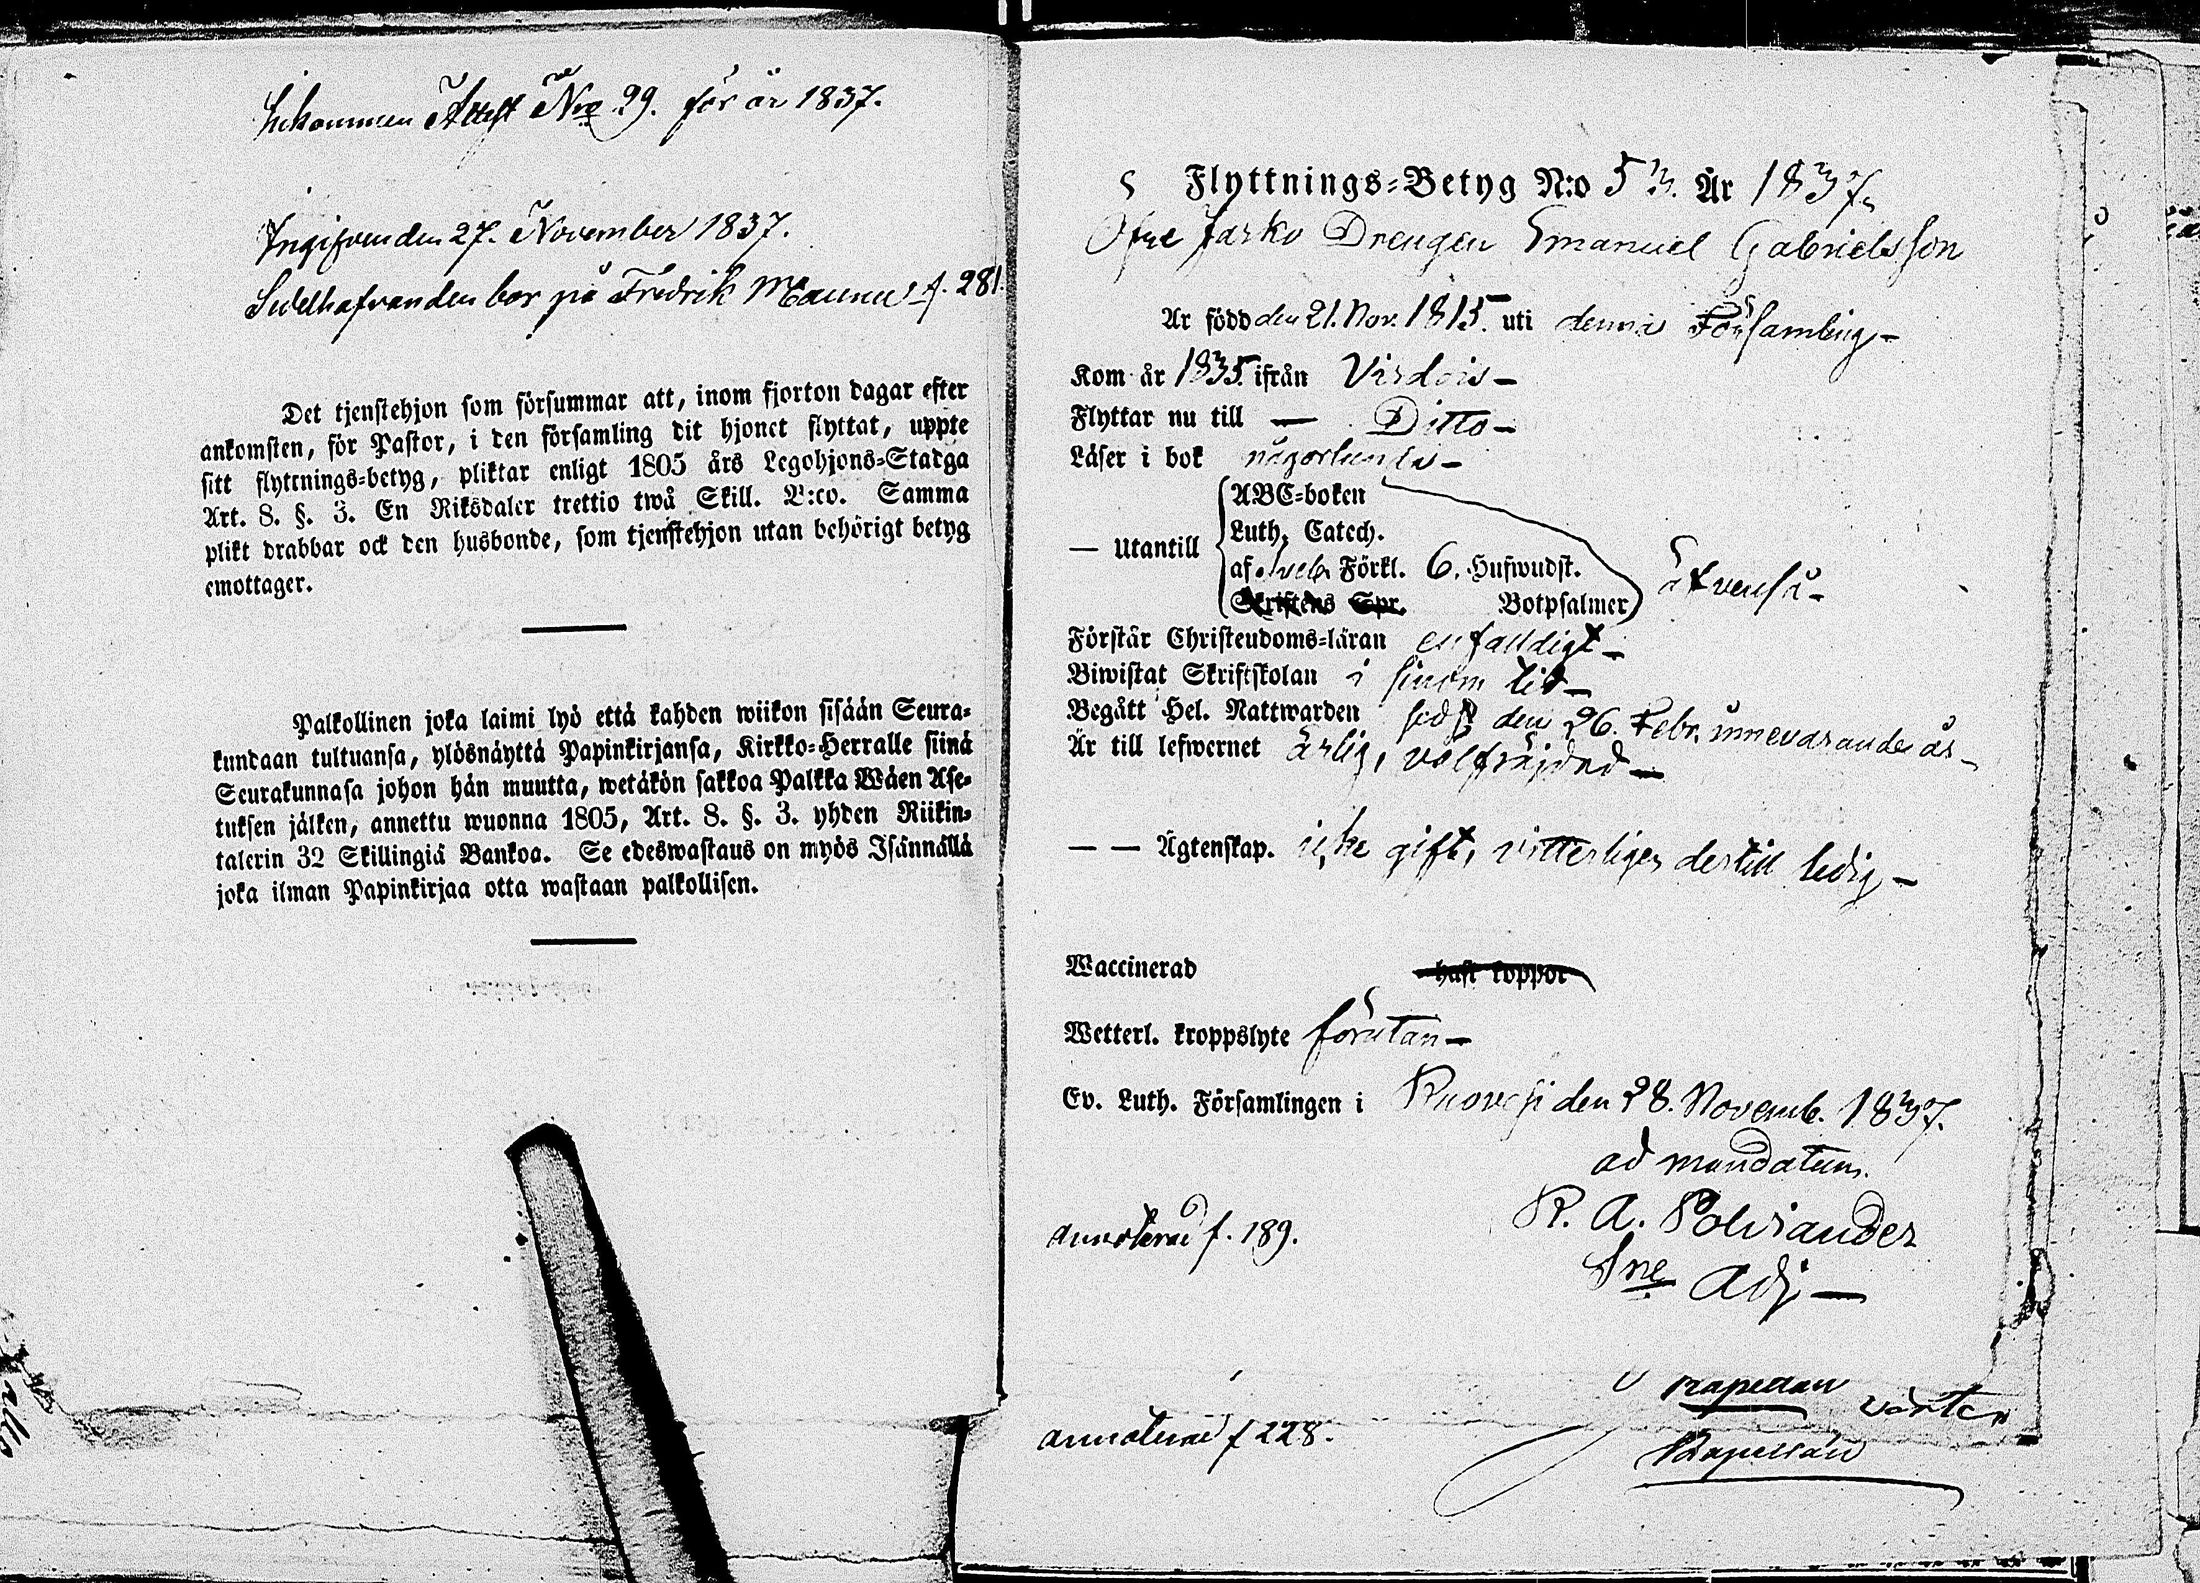 Inkommen Attest Nro 29. för år 1837.
Ingifven den 27. November 1837.
Innehafvanden bor på Fredrik Maunu f. 281.
Det tjenstehjon som försummar att, inom fjorton dagar efter
ankomsten, för Pastor, i den församling dit hjonet flyttat, uppte
sitt flyttnings-betyg, pliktar enligt 1805 års Legohjons-Stadga
Art. 8. §. 3. En Riksdaler trettio twå Skill. B:co. Samma
plikt drabbar ock den husbonde, som tjenstehjon utan behörigt betyg
emottager.
Palkollinen joka laimi lyö että kahden wiikon sisään Seura-
kundaan tultuansa, ylösnäyttä Papinkirjansa, Kirkko-Herralle siinä
Seurakunnasa johon hän muutta, wetäkön sakkoa Palkka Wäen Ase-
tuksen jälken, annettu wuonna 1805, Art. 8. §. 3. yhden Riikin-
talerin 32 Skillingiä Bankoa. Se edeswastaus on myös Isännällä
joka ilman Papinkirjaa otta wastaan palkollisen.
Flyttnings-Betyg N:o 53. År 1837.
Öfre Jarko Drengen Emanuel Gabrielsson
Är född den 21. Nov. 1815. uti denna Församling-
Kom år 1835. ifrån Virdois-
Flyttar nu till — Ditto-
Läser i bok någorlunda-
ABC-boken
Luth. Catech.
— Utantill
af Sveb. Förkl. 6. Hufwudst.
Skriftens Spr. Botpsalmer
äfvenså-
Förstår Christendoms-läran enfaldigt-
Biwistat Skriftskolan i sinom tid-
Begått Hel. Nattwarden sedst den 26. Febr. innevarande år-
Är till lefwernet ärlig, välfräjdad-
— — Ägtenskap. icke gift, vitterligen dertill ledig-
Waccinerad haft koppor
Wetterl. kroppslyte förutan-
Ev. Luth. Församlingen i Ruovesi den 28. Novemb. 1837.
ad mandatum.
R. A. Polviander
Sne Adj-
annoterad f. 189.
Kapellan
annoterad f 228.
Kapellan